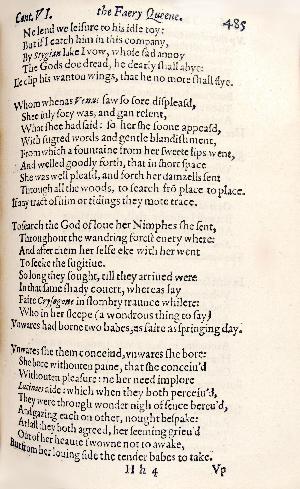 Cant. VI. the Faery Queene. 485
Ne lend we leisure to his idle toy:
But if I catch him in this company,
By Stygian lake I vow, whose sad annoy
The Gods doe dread, he dearly shall abye:
Ile clip his wanton wings, that he no more shall flye.
Whom whenas Venus saw so sore displeasd,
Shee inly sory was, and gan relent,
What shee had said: so her she soone appeasd,
With sugred words and gentle blandishment,
From which a fountaine from her sweete lips went,
And welled goodly forth, that in short space
She was well pleasd, and forth her damzells sent
Through all the woods, to search frō place to place.
If any tract of him or tidings they mote trace.
To search the God of loue her Nimphes she sent,
Throughout the wandring forest euery where:
And after them her selfe eke with her went
To seeke the fugitiue.
So long they sought, till they arriued were
In that same shady couert, whereas lay
Faire Crysogone in slombry traunce whilere:
Who in her sleepe (a wondrous thing to say)
Vnwares had borne two babes, as faire as springing day.
Vnwares she them conceiud, vnwares she bore:
She bore withouten paine, that she conceiu'd
Withouten pleasure: ne her need implore
Lucinaes aide: which when they both perceiu'd,
They were through wonder nigh of sence bereu'd,
And gazing each on other, nought bespake:
At last they both agreed, her seeming grieu'd
Out of her heauie swowne not to awake,
But from her louing side the tender babes to take.
H h 4 Vp